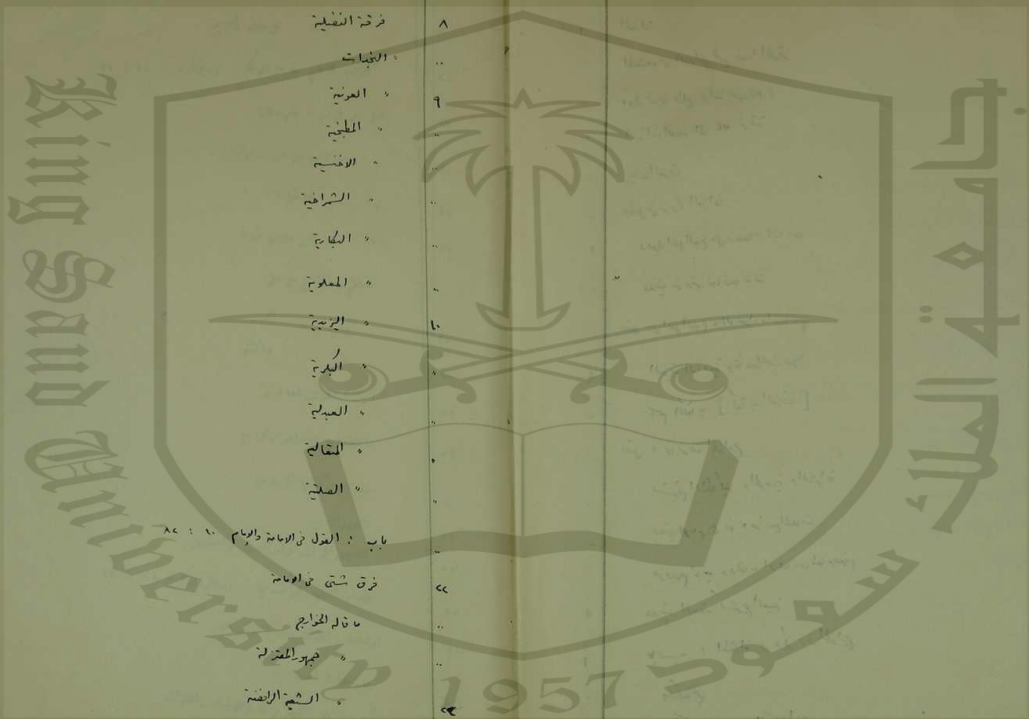 ٨ فرقة الفضيلية
.. " النجدات
٩ " العونية
.. " المطبخية
.. " الاخنسية
.. " الشمراخية
.. " البكارية
.. " المعلوية
١٠ " اليزيدية
" " البكرية
.. " العبدلية
" " المتقالية
.. " الصلتية
.. باب : القول فى الامامة والامام ١٠ : ٨٢
٢٢ فرق شتى فى الامامة
.. ما قاله الخوارج
.. " جمهور المعتزلة
٢٣ " الشيعة الرافضة
King Saud University
جامعة الملك سعود
1957